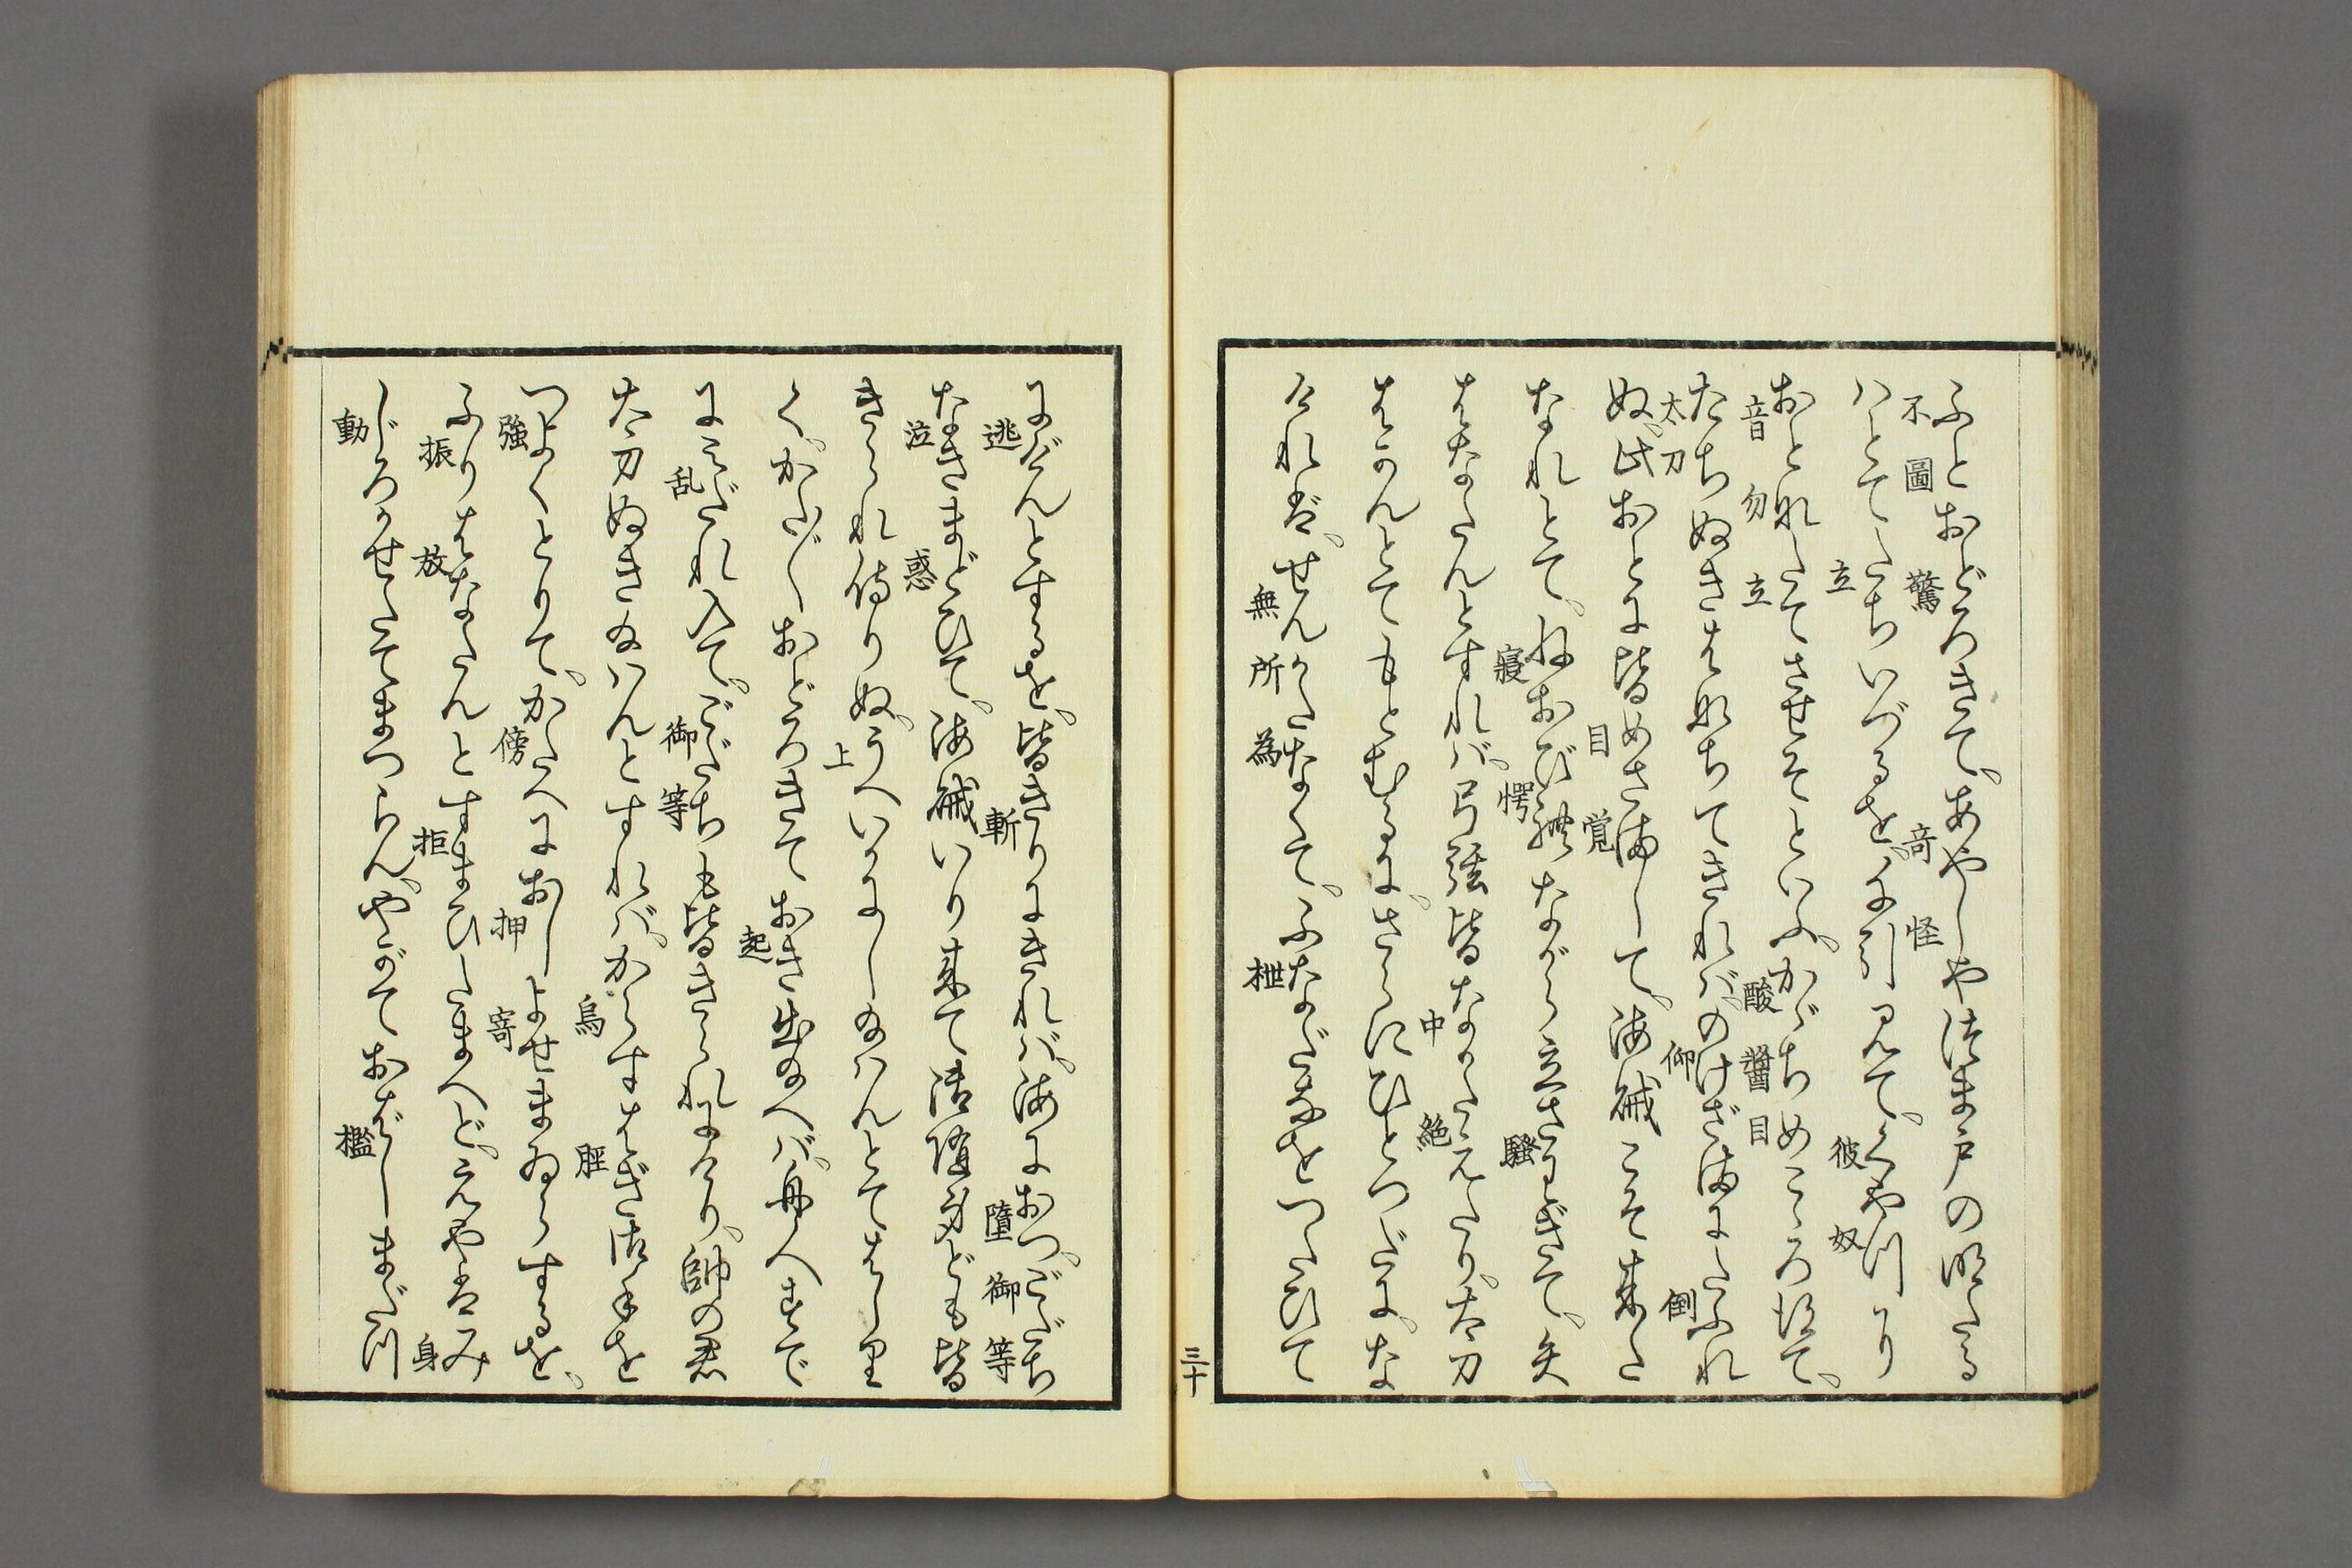 ふとおどろきて、あやしやつま戸の明たる
不圖 驚 奇怪
はとてたちいづるを、引見て、くやつより
立 彼奴
おとなたてさせそといふ、かゞちめころほて、
音 勿 立 酸醬目
たちぬきはなちてきればのけざまにたふれ
太刀 仰 倒
ぬ、此おとに皆めさまして、海賊こそ来た
目覚
なれとて、ねおび躰ながら立さわぎて、矢
寝愕 騒
はなたんとすれば、弓弦皆なかたえたり、太刀
中絶
はかんとてもとむるに、さらにひとつだに、な
ければ、せんかたなくて、ふなだなをつたひて
無所為 枻
三十
にげんとするを、皆きりにきれば、海におつ、ごだち
逃 斬 墮 御等
なきまどひて、海賊いり来て法師ばらども皆
泣 惑
きられ侍りぬ、うへいかにし給はんとてはしり
上
く、かたがたおどろきておき出給へば、舟人まで
起
にみだれ入て、ごだちも皆きられにけり、帥の君
乱 御等
太刀ぬき給はんとすれば、からすはぎ法師を
烏 脛
つよくとりて、かたへにおしよせまゐらするを、
強 傍 押 寄
ふりはなたんとすまひたまへど、えやはみ
振 放 拒 身
じろかせたてまつらん、やがておばしまだつ
動 檻